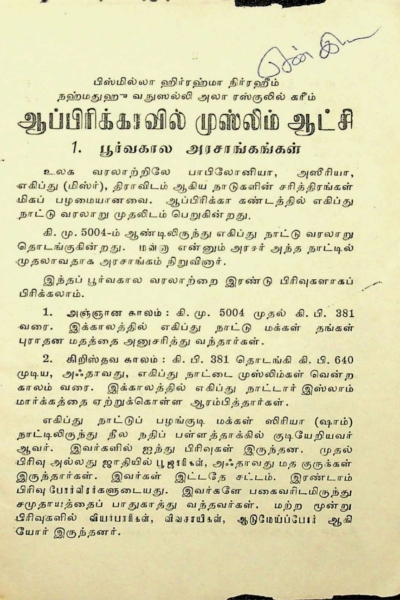 பிஸ்மில்லா ஹிர்ரஹ்மா நிர்ரஹீம்
நஹ்மதுஹு வநுஸல்லி அலா ரஸூலில் கரீம்
ஆப்பிரிக்காவில் முஸ்லிம் ஆட்சி
1. பூர்வகால அரசாங்கங்கள்
உலக வரலாற்றிலே பாபிலோனியா, அஸீரியா,
எகிப்து (மிஸ்ர்), திராவிடம் ஆகிய நாடுகளின் சரித்திரங்கள்
மிகப் பழமையானவை. ஆப்பிரிக்கா கண்டத்தில் எகிப்து
நாட்டு வரலாறு முதலிடம் பெறுகின்றது.
கி. மு. 5004-ம் ஆண்டிலிருந்து எகிப்து நாட்டு வரலாறு
தொடங்குகின்றது. என்னும் அரசர் அந்த நாட்டில்
முதலாவதாக அரசாங்கம் நிறுவினார்.
இந்தப் பூர்வகால வரலாற்றை இரண்டு பிரிவுகளாகப்
பிரிக்கலாம்.
1. அஞ்ஞான காலம் : கி. மு. 5004 முதல் கி. பி. 381
வரை. இக்காலத்தில் எகிப்து நாட்டு மக்கள் தங்கள்
புராதன மதத்தை அனுசரித்து வந்தார்கள்.
2. கிறிஸ்தவ காலம் : கி. பி. 381 தொடங்கி கி. பி. 640
முடிய, அஃதாவது, எகிப்து நாட்டை முஸ்லிம்கள் வென்ற
காலம் வரை. இக்காலத்தில் எகிப்து நாட்டார் இஸ்லாம்
மார்க்கத்தை ஏற்றுக்கொள்ள ஆரம்பித்தார்கள்.
எகிப்து நாட்டுப் பழங்குடி மக்கள் ஸிரியா (ஷாம்)
நாட்டிலிருந்து நீல நதிப் பள்ளத்தாக்கில் குடியேறியவர்
ஆவர். இவர்களில் ஐந்து பிரிவுகள் இருந்தன. முதல்
பிரிவு அல்லது ஜாதியில் பூஜாரிகள், அஃதாவது மத குருக்கள்
இருந்தார்கள். இவர்கள் இட்டதே சட்டம். இரண்டாம்
பிரிவு போர்வீரர்களுடையது. இவர்களே பகைவரிடமிருந்து
சமுதாயத்தைப் பாதுகாத்து வந்தவர்கள். மற்ற மூன்று
பிரிவுகளில் வியாபாரிகள், விவசாயிகள், ஆடுமேய்ப்போர் ஆகி
யோர் இருந்தனர்.